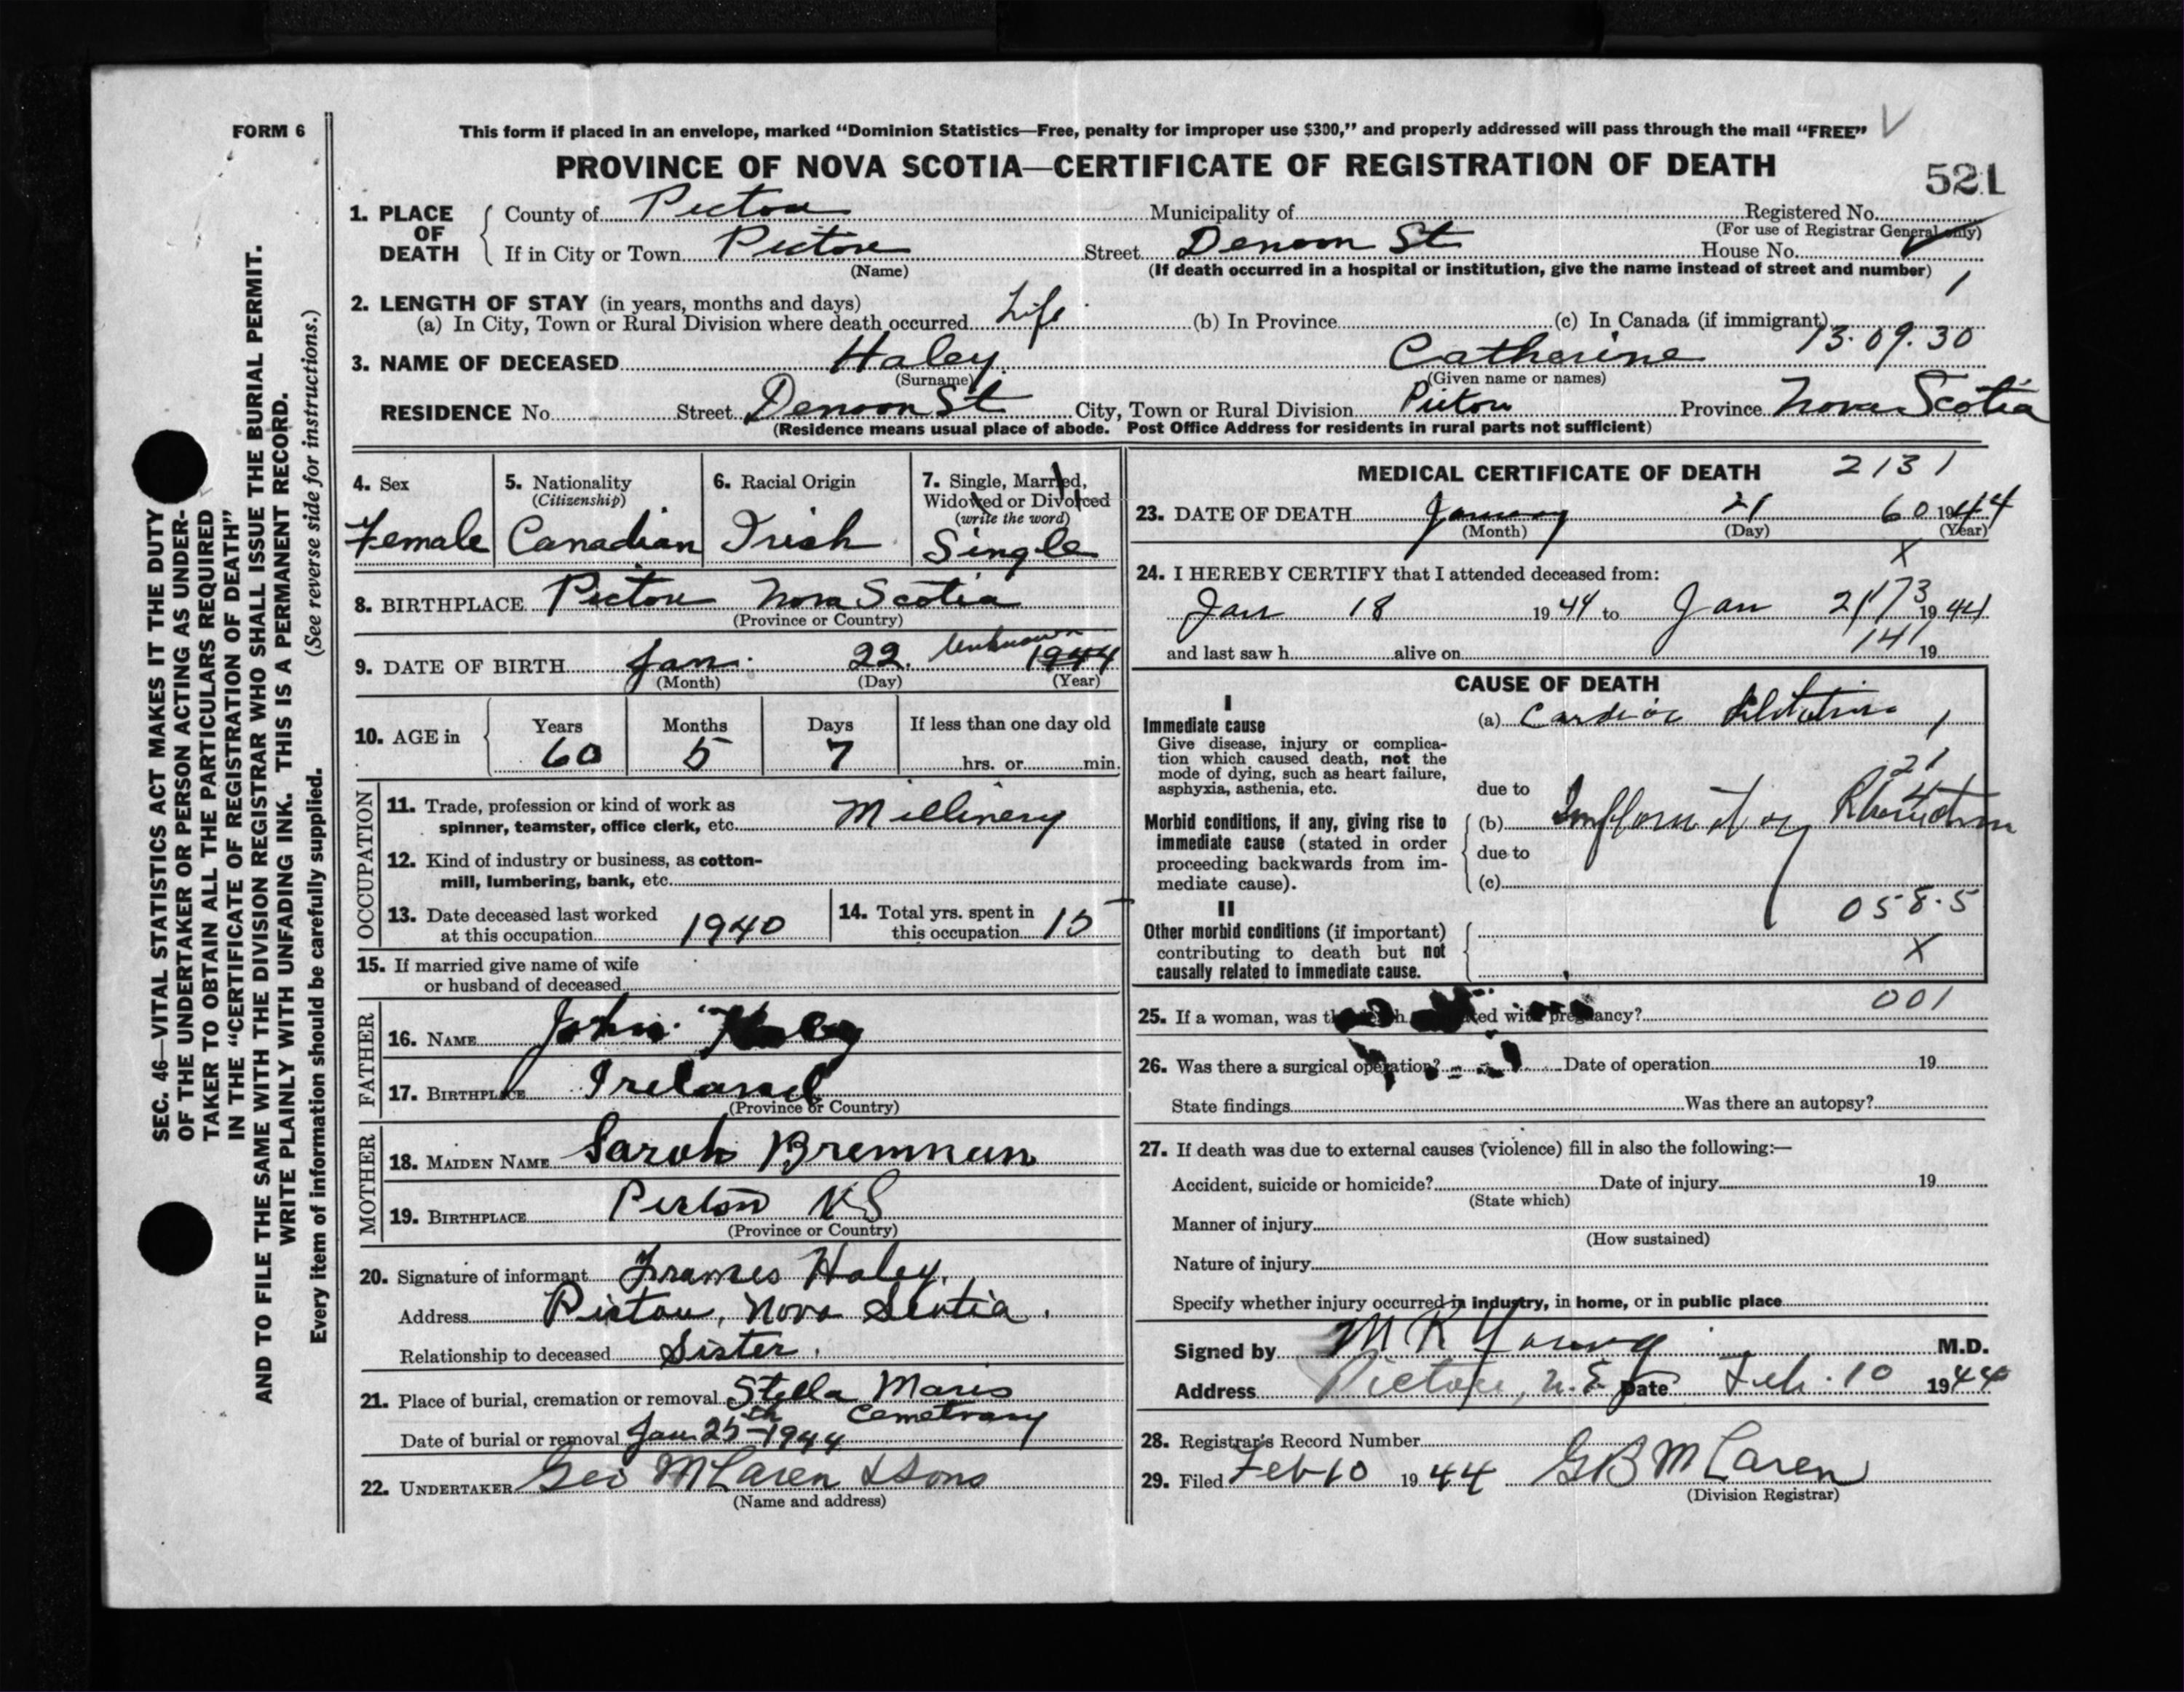 FORM 6
This form if placed in an envelope, marked “Dominion Statistics—Free, penalty for improper use $300,” and properly addressed will pass through the mail “FREE” V
PROVINCE OF NOVA SCOTIA—CERTIFICATE OF REGISTRATION OF DEATH
521
1. PLACE OF DEATH
County of Pictou Municipality of Registered No.
(For use of Registrar General only)
If in City or Town Pictou Street Denoon St House No.
(Name) (If death occurred in a hospital or institution, give the name instead of street and number) 1
2. LENGTH OF STAY (in years, months and days)
(a) In City, Town or Rural Division where death occurred Life (b) In Province (c) In Canada (if immigrant)
13.09.30
3. NAME OF DECEASED Haley Catherine
(Surname) (Given name or names)
RESIDENCE No. Street Denoon St City, Town or Rural Division Pictou Province Nova Scotia
(Residence means usual place of abode. Post Office Address for residents in rural parts not sufficient)
4. Sex Female
5. Nationality (Citizenship) Canadian
6. Racial Origin Irish
7. Single, Married, Widowed or Divorced (write the word) Single
8. BIRTHPLACE Pictou Nova Scotia
(Province or Country)
9. DATE OF BIRTH Jan. 22. Unknown 1944
(Month) (Day) (Year)
10. AGE in Years 60 Months 5 Days 7 If less than one day old hrs. or min.
OCCUPATION
11. Trade, profession or kind of work as
spinner, teamster, office clerk, etc. Millinery
12. Kind of industry or business, as cotton-
mill, lumbering, bank, etc.
13. Date deceased last worked
at this occupation 1940
14. Total yrs. spent in
this occupation 15
15. If married give name of wife
or husband of deceased
FATHER
16. NAME John Haley
17. BIRTHPLACE Ireland
(Province or Country)
MOTHER
18. MAIDEN NAME Sarah
19. BIRTHPLACE Pictou NS
(Province or Country)
20. Signature of informant Frances Haley.
Address Pictou, Nova Scotia.
Relationship to deceased Sister.
21. Place of burial, cremation or removal Stella Maris
Cemetrary
Date of burial or removal Jan 25th-1944
22. UNDERTAKER Geo McLaren & Sons
(Name and address)
MEDICAL CERTIFICATE OF DEATH 2131
23. DATE OF DEATH January 21 60 1944
(Month) (Day) (Year)
X
24. I HEREBY CERTIFY that I attended deceased from:
Jan 18 1944 to Jan 21 173 1944
141
and last saw h alive on 19
CAUSE OF DEATH
I
Immediate cause
Give disease, injury or complica-
tion which caused death, not the
mode of dying, such as heart failure,
asphyxia, asthenia, etc.
(a) Cardiac Dilitation 1
21
4
due to
Morbid conditions, if any, giving rise to
immediate cause (stated in order
proceeding backwards from im-
mediate cause).
(b)
due to
(c)
058.5
II
Other morbid conditions (if important)
contributing to death but not
causally related to immediate cause.
X
001
25. If a woman, was with pregnancy?
26. Was there a surgical operation? Date of operation 19
State findings Was there an autopsy?
27. If death was due to external causes (violence) fill in also the following:—
Accident, suicide or homicide? Date of injury 19
(State which)
Manner of injury
(How sustained)
Nature of injury
Specify whether injury occurred in industry, in home, or in public place
Signed by M R Young M.D.
Address Pictou, N.S. Date Feb. 10 1944
28. Registrar's Record Number
29. Filed Feb 10 1944 G B McLaren
(Division Registrar)
SEC. 46—VITAL STATISTICS ACT MAKES IT THE DUTY
OF THE UNDERTAKER OR PERSON ACTING AS UNDER-
TAKER TO OBTAIN ALL THE PARTICULARS REQUIRED
IN THE “CERTIFICATE OF REGISTRATION OF DEATH”
AND TO FILE THE SAME WITH THE DIVISION REGISTRAR WHO SHALL ISSUE THE BURIAL PERMIT.
WRITE PLAINLY WITH UNFADING INK. THIS IS A PERMANENT RECORD.
Every item of information should be carefully supplied. (See reverse side for instructions.)